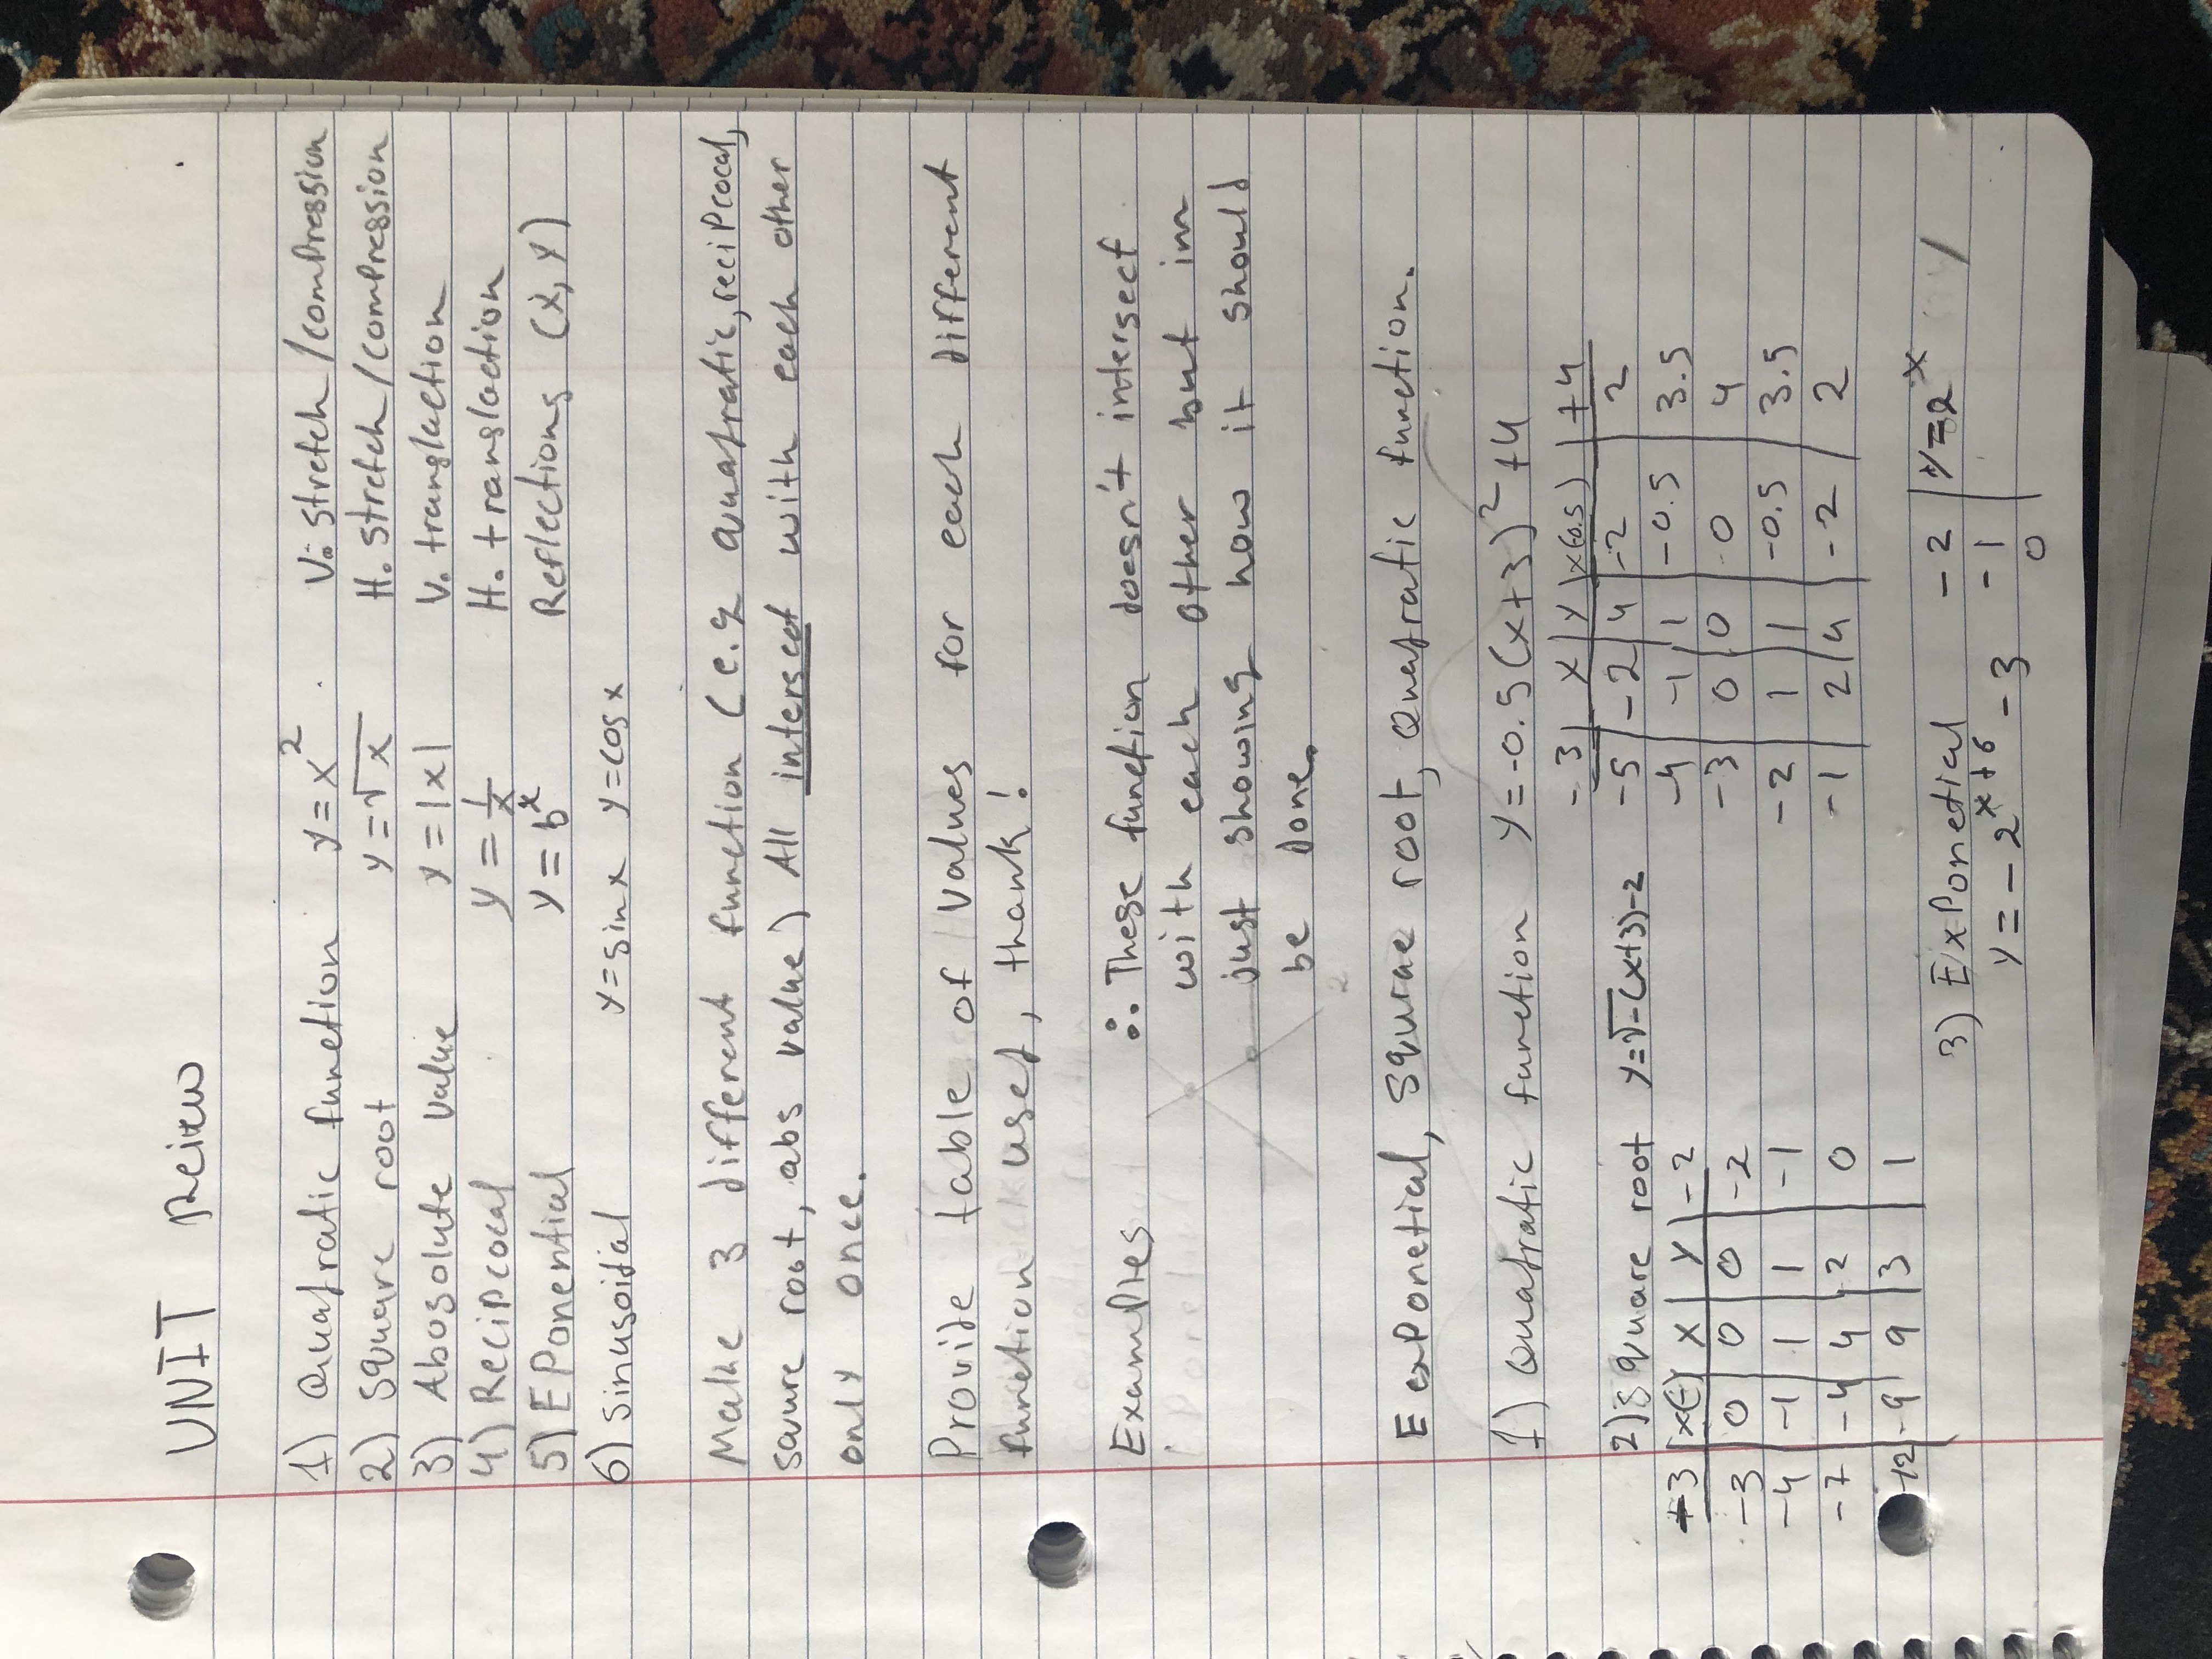 UNIT Reiew
1) Quafratic function y=x² V. stretch/compression
2) Square root y=√x H. stretch/compression
3) Abosolute value y=|x| V. translaction
4) Recipcocal y=1/x H. translaction
5) EPonential y=bˣ Reflections (x,y)
6) sinusoidal y=sinx y=cosx
Make 3 different function (e.g quafratic, reciprocal,
saure root, abs value) All intersect with each other
only once.
Provide table of values for each different
function used, thank!
Examples ∴ These function doesn't intersect
with each other but im
just showing how it should
be done.
Exponetial, squrae root, Quafratic function.
1) Quafratic function y=-0.5(x+3)²+4
-3 | x | y | x(-0.5) | +4
-5 | -2 | 4 | -2 | 2
-4 | -1 | 1 | -0.5 | 3.5
-3 | 0 | 0 | 0 | 4
-2 | 1 | 1 | -0.5 | 3.5
-1 | 2 | 4 | -2 | 2
2) square root y=√-(x+3)-2
-3 | x(-) | x | y | -2
-3 | 0 | 0 | 0 | -2
-4 | -1 | 1 | 1 | -1
-7 | -4 | 4 | 2 | 0
-12 | -9 | 9 | 3 | 1
3) Exponetial
y=-2ˣ⁺⁶-3
-2 | y=2ˣ
-1
0